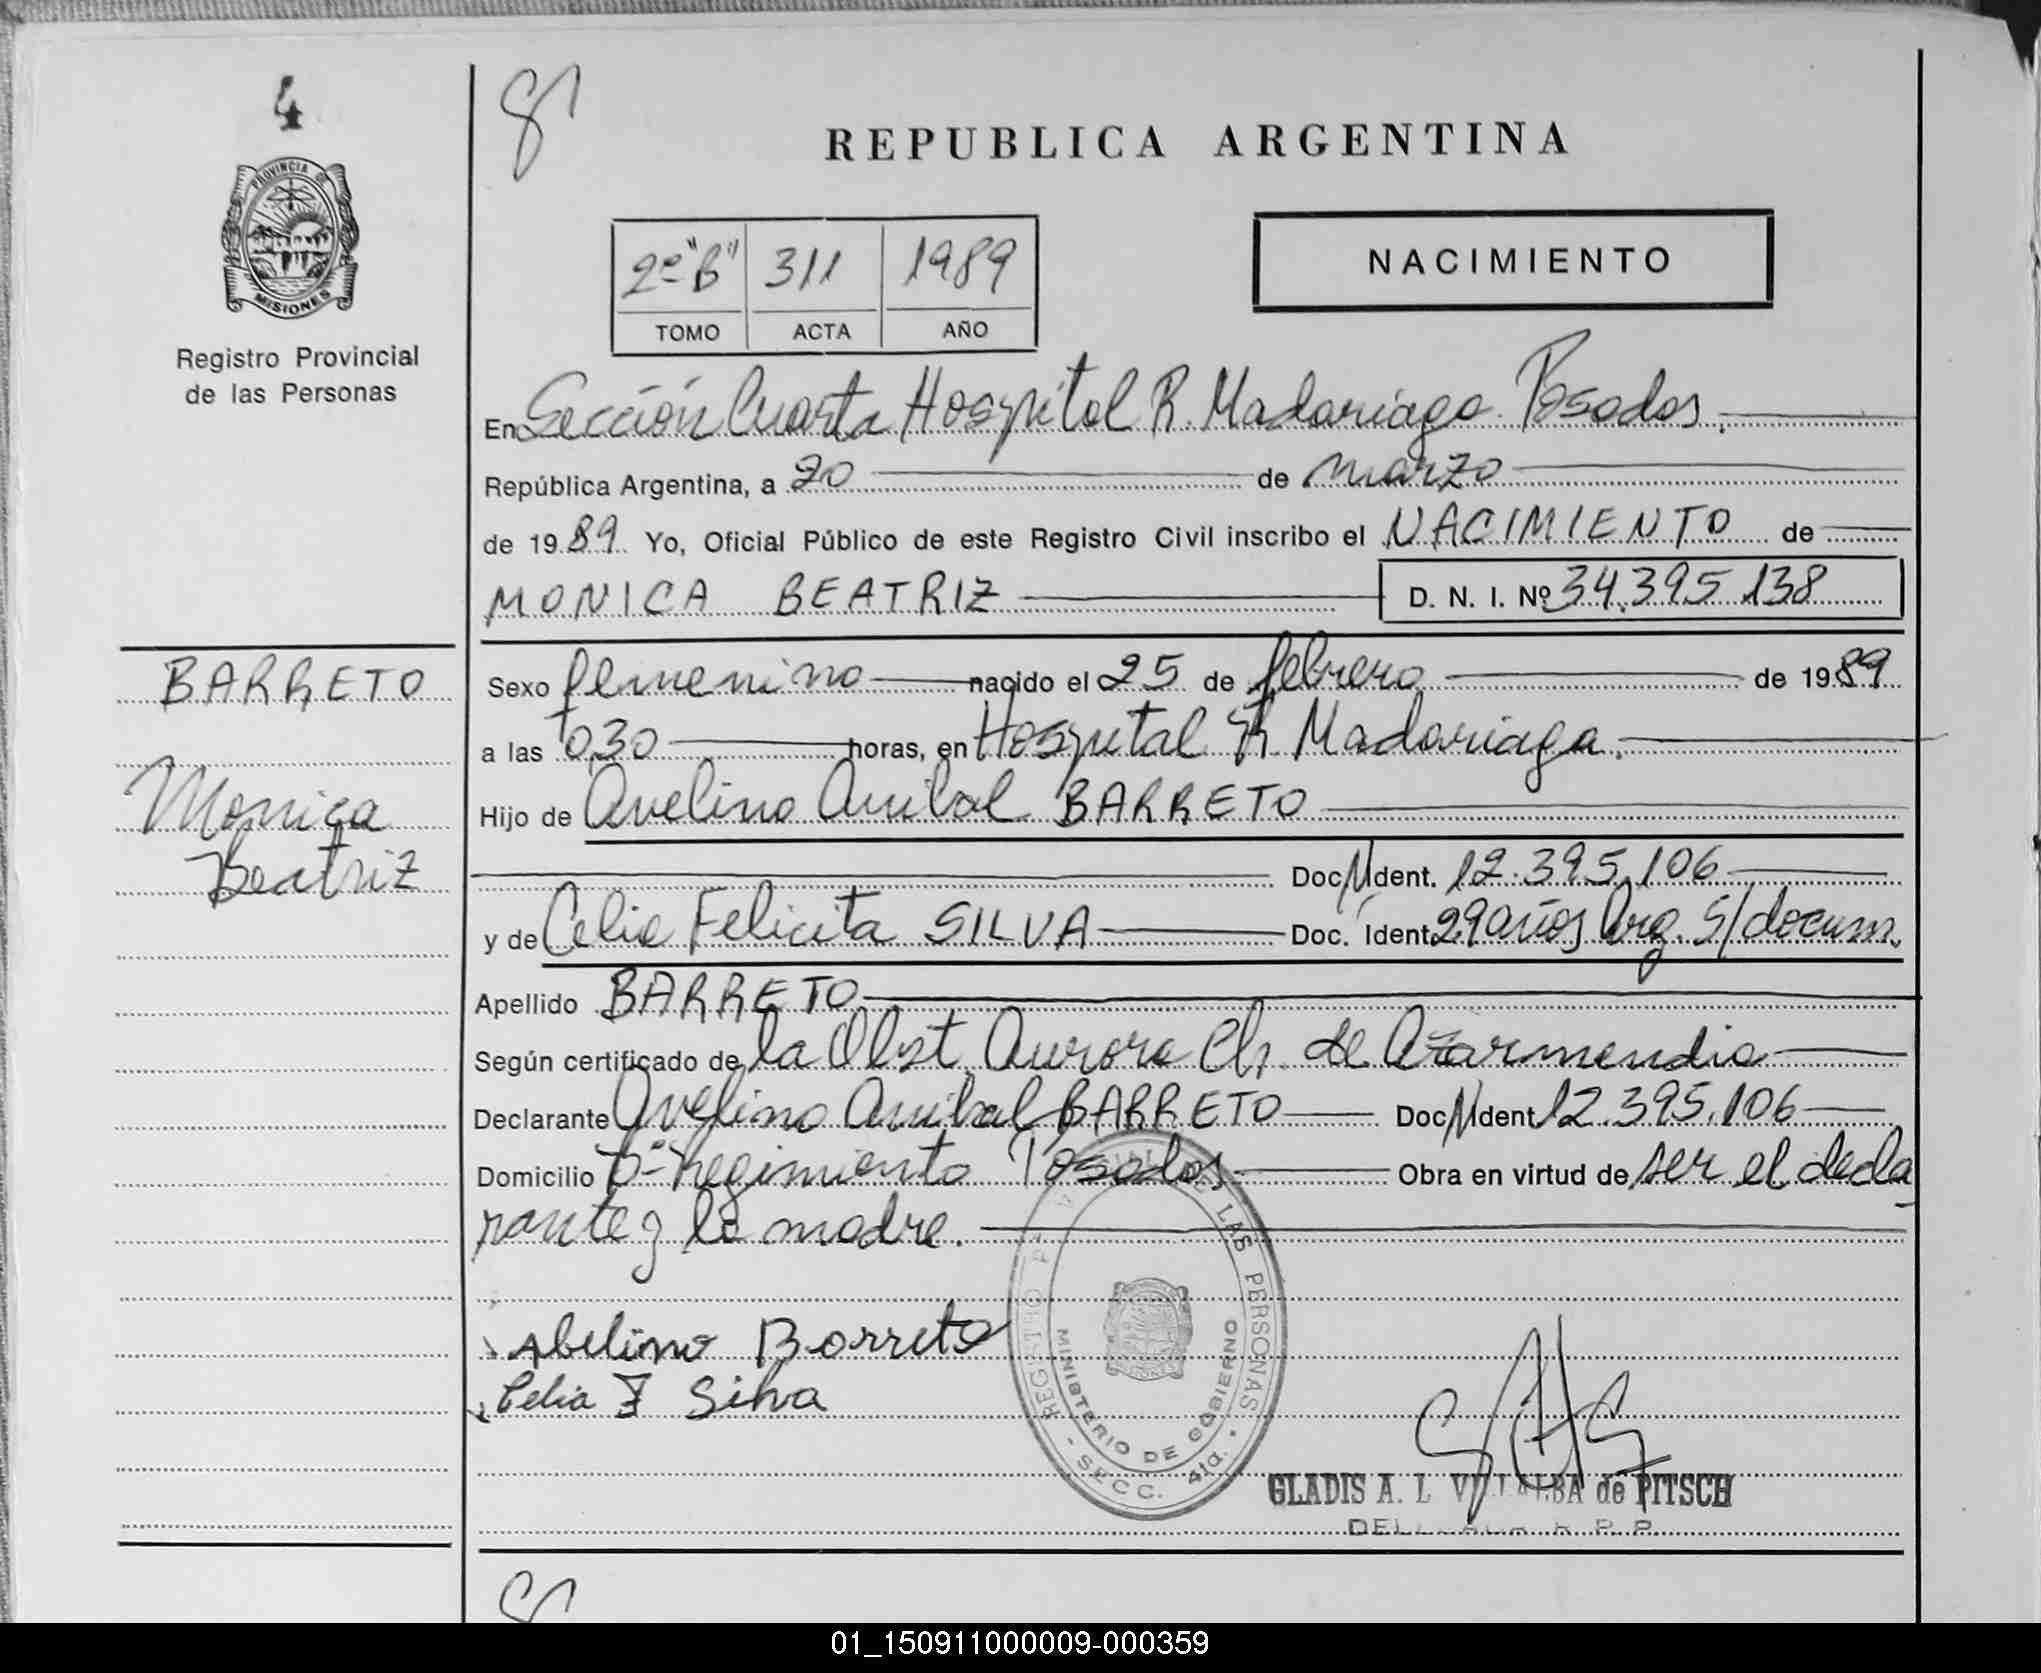 4
PROVINCIA DE
MISIONES
Registro Provincial
de las Personas
REPUBLICA ARGENTINA
2º "B" 311 1989
TOMO ACTA AÑO
NACIMIENTO
En Sección Cuarta Hospital R. Madariaga. Posadas.
República Argentina, a 20 de marzo
de 1989 Yo, Oficial Público de este Registro Civil inscribo el NACIMIENTO de
MONICA BEATRIZ D. N. I. Nº 34.395.138
BARRETO
Monica
Beatriz
Sexo femenino nacido el 25 de febrero de 1989
a las 0,30 horas, en Hospital R Madariaga.
Hijo de Avelino Anibal BARRETO
Doc. Ident. 12.395.106
y de Celia Felicita SILVA Doc. Ident. 29 años Arg. S/docum.
Apellido BARRETO
Según certificado de la Obst. Aurora Ch. de Azarmendia
Declarante Avelino Anibal BARRETO Doc Ident 12.395.106
Domicilio Bº Regimiento Posadas Obra en virtud de ser el decla
rante y la madre.
Abelino Barreto
Celia F Silva
REGISTRO P VINCIAL DE LAS PERSONAS
MINISTERIO DE GOBIERNO
- SECC. 4ta. -
GLADIS A. L VILLALBA de PITSCH
01_150911000009-000359